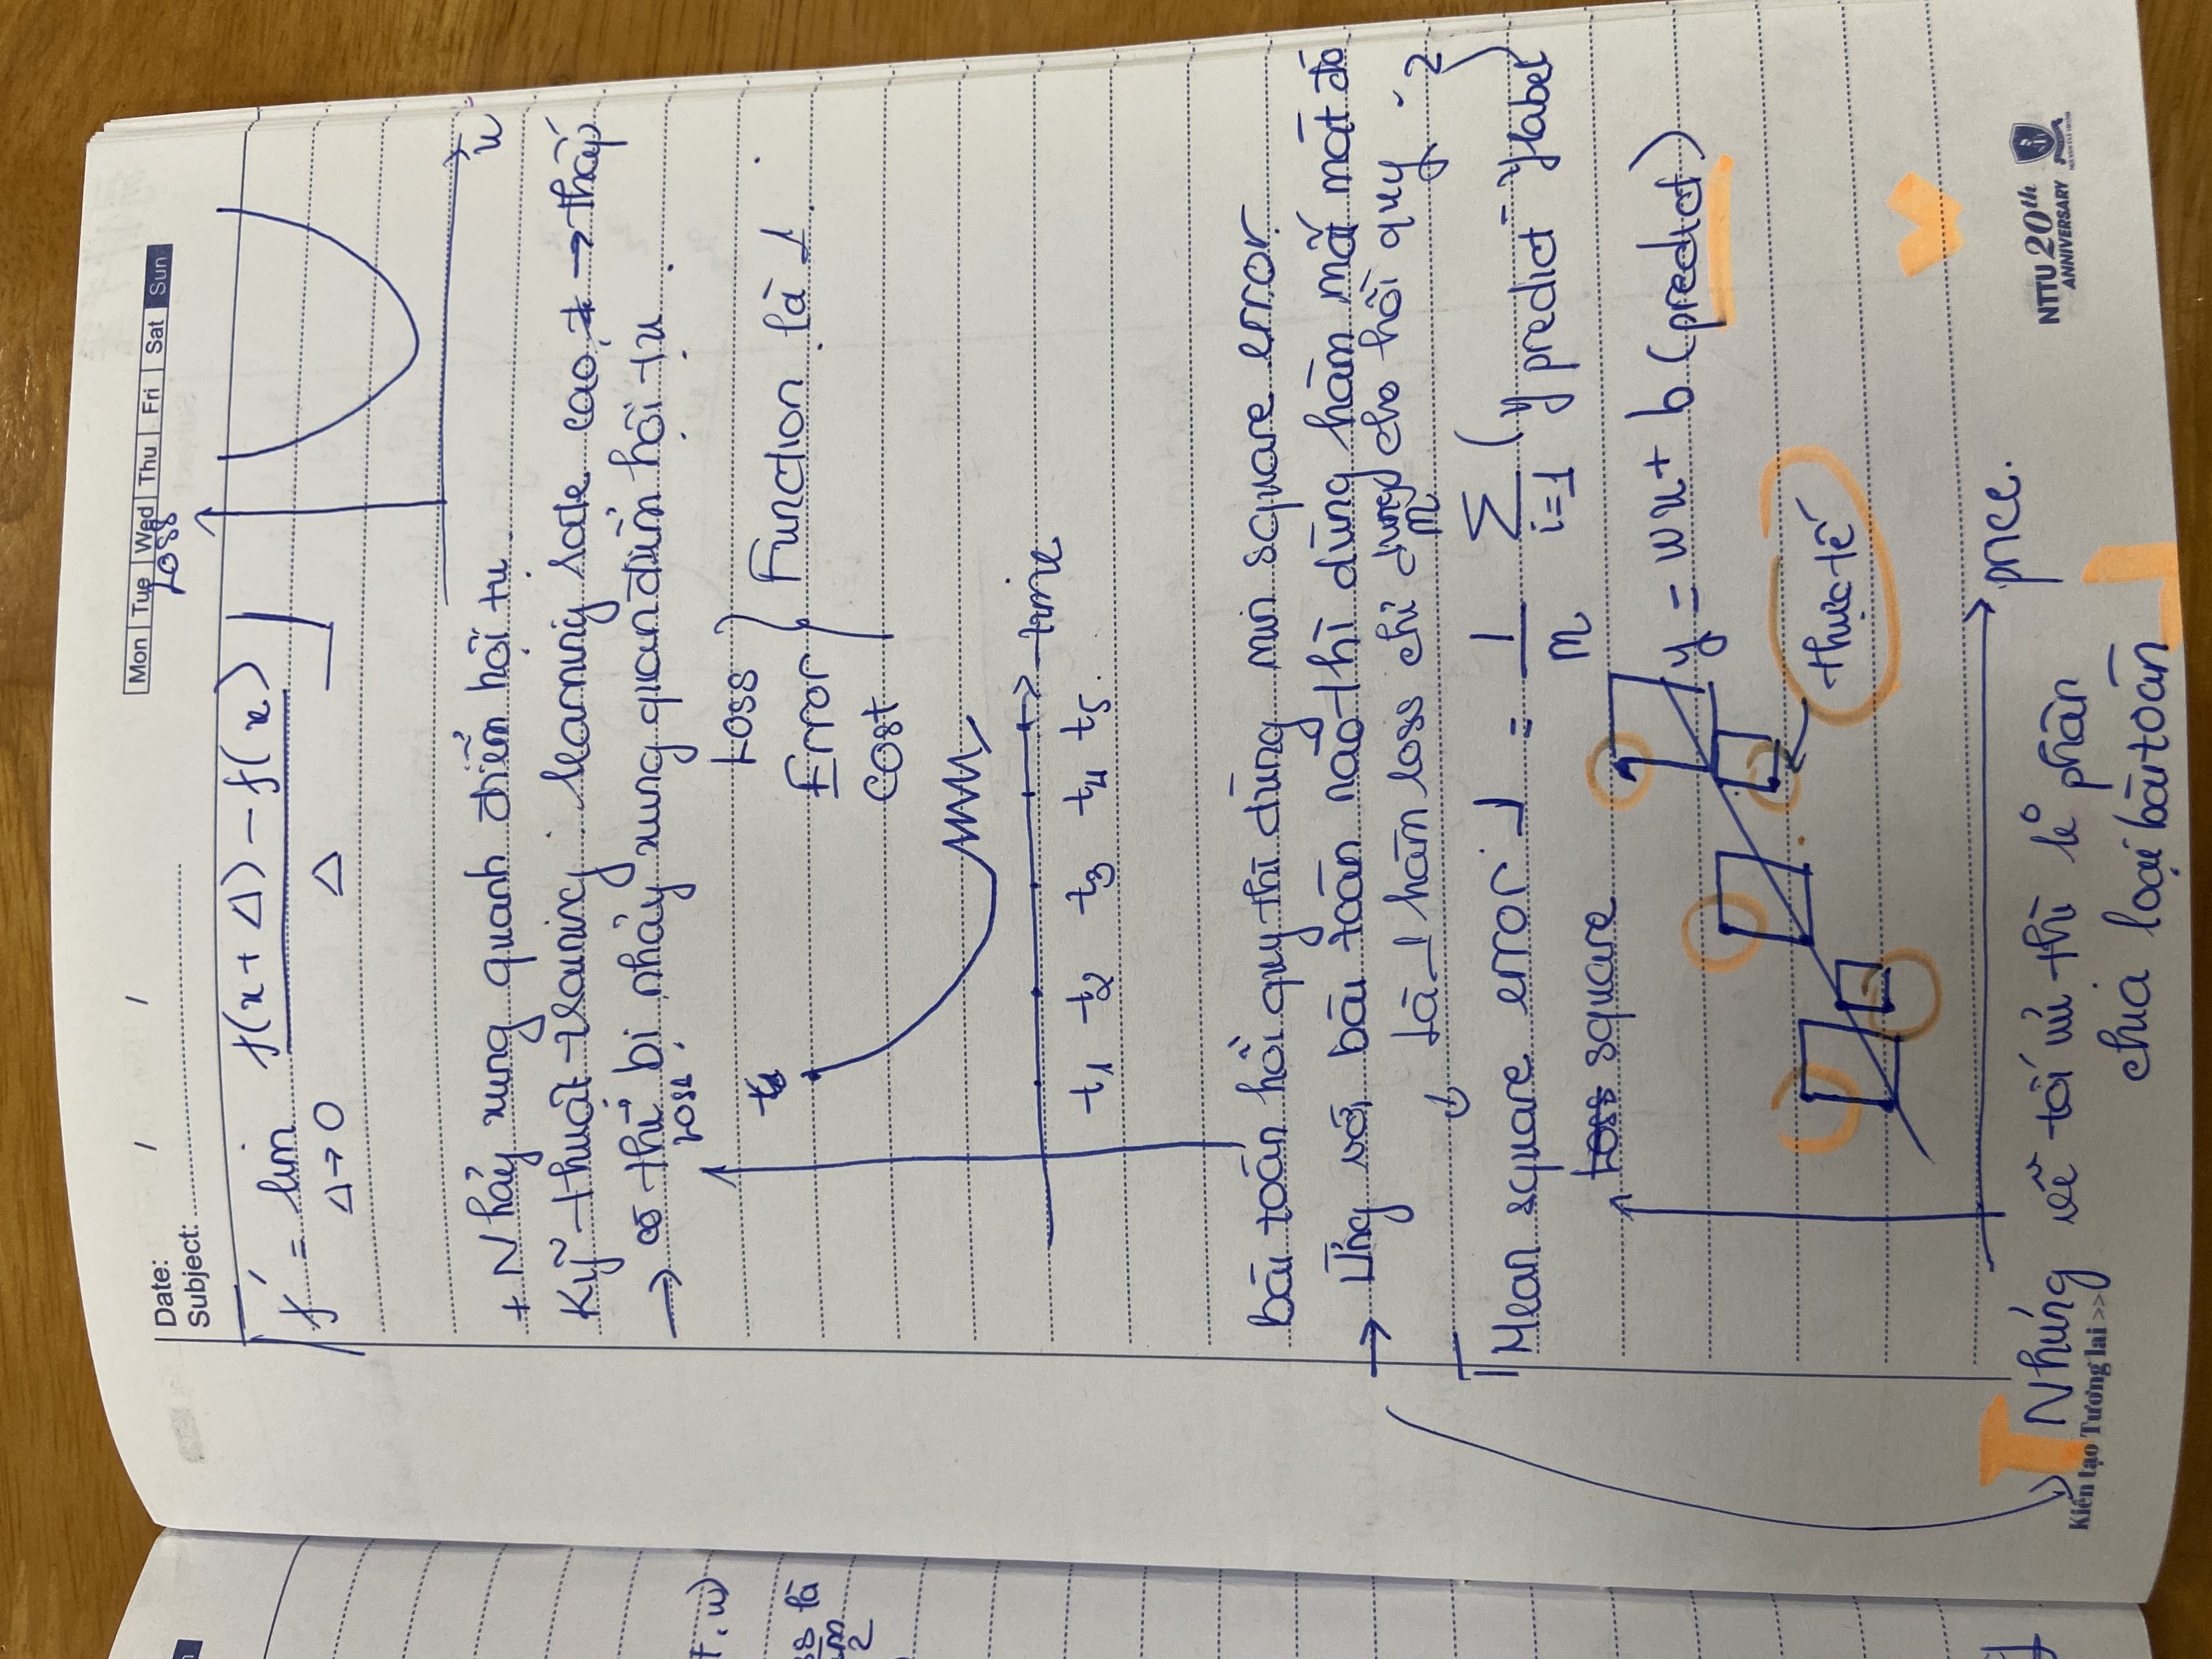 Date: / /
Subject:
Mon Tue Wed Thu Fri Sat Sun
Loss
f' = lim f(x + Δ) - f(x)
Δ→0 Δ
x
+ Nhảy xung quanh điểm hội tụ.
Kỹ thuật training: learning rate cao → thấp
→ có thể bị nhảy xung quan điểm hội tụ.
Loss
Loss
Error
Cost
Function là 1.
time
t1 t2 t3 t4 t5.
Bài toán hồi quy thì dùng min square error.
→ Ứng với bài toán nào thì dùng hàm mất mát đó
↓ Là 1 hàm loss chỉ dùng cho hồi quy
Mean square error = 1/m m Σ i=1 (y predict - y label)²
Loss square
y = wx + b (predict)
thực tế
price.
Nhưng về tối ưu thì k° phân
chia loại bài toán
Kiến tạo Tương lai >>
NTTU 20th
ANNIVERSARY
t, w)
ss là
2